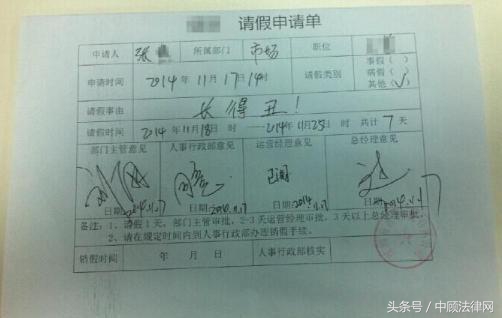 请假申请单
申请人 张 所属部门 市场 职位
申请时间 2014年11月17日14时 请假类别 事假( ) 病假( ) 其他(√)
请假事由 长得丑!
请假时间 2014年11月18日 时 ——2014年11月25日 时 共计7天
部门主管意见 人事行政部意见 运营经理意见 总经理意见
日期:2014.11.17 日期:2014.11.17 日期:2014.11.17 日期:2014.11.17
备注:1、请假1天,部门主管审批,2-3天运营经理审批,3天以上总经理审批。
2、请在规定时间内到人事行政部办理销假手续。
销假时间 年 月 日 人事行政部核实
头条号 / 中顾法律网